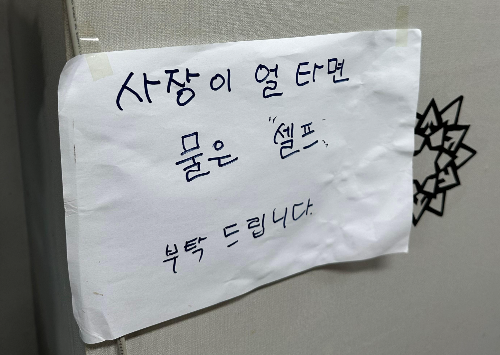 사장이 얼 타면
물은 "셀프"
부탁 드립니다.